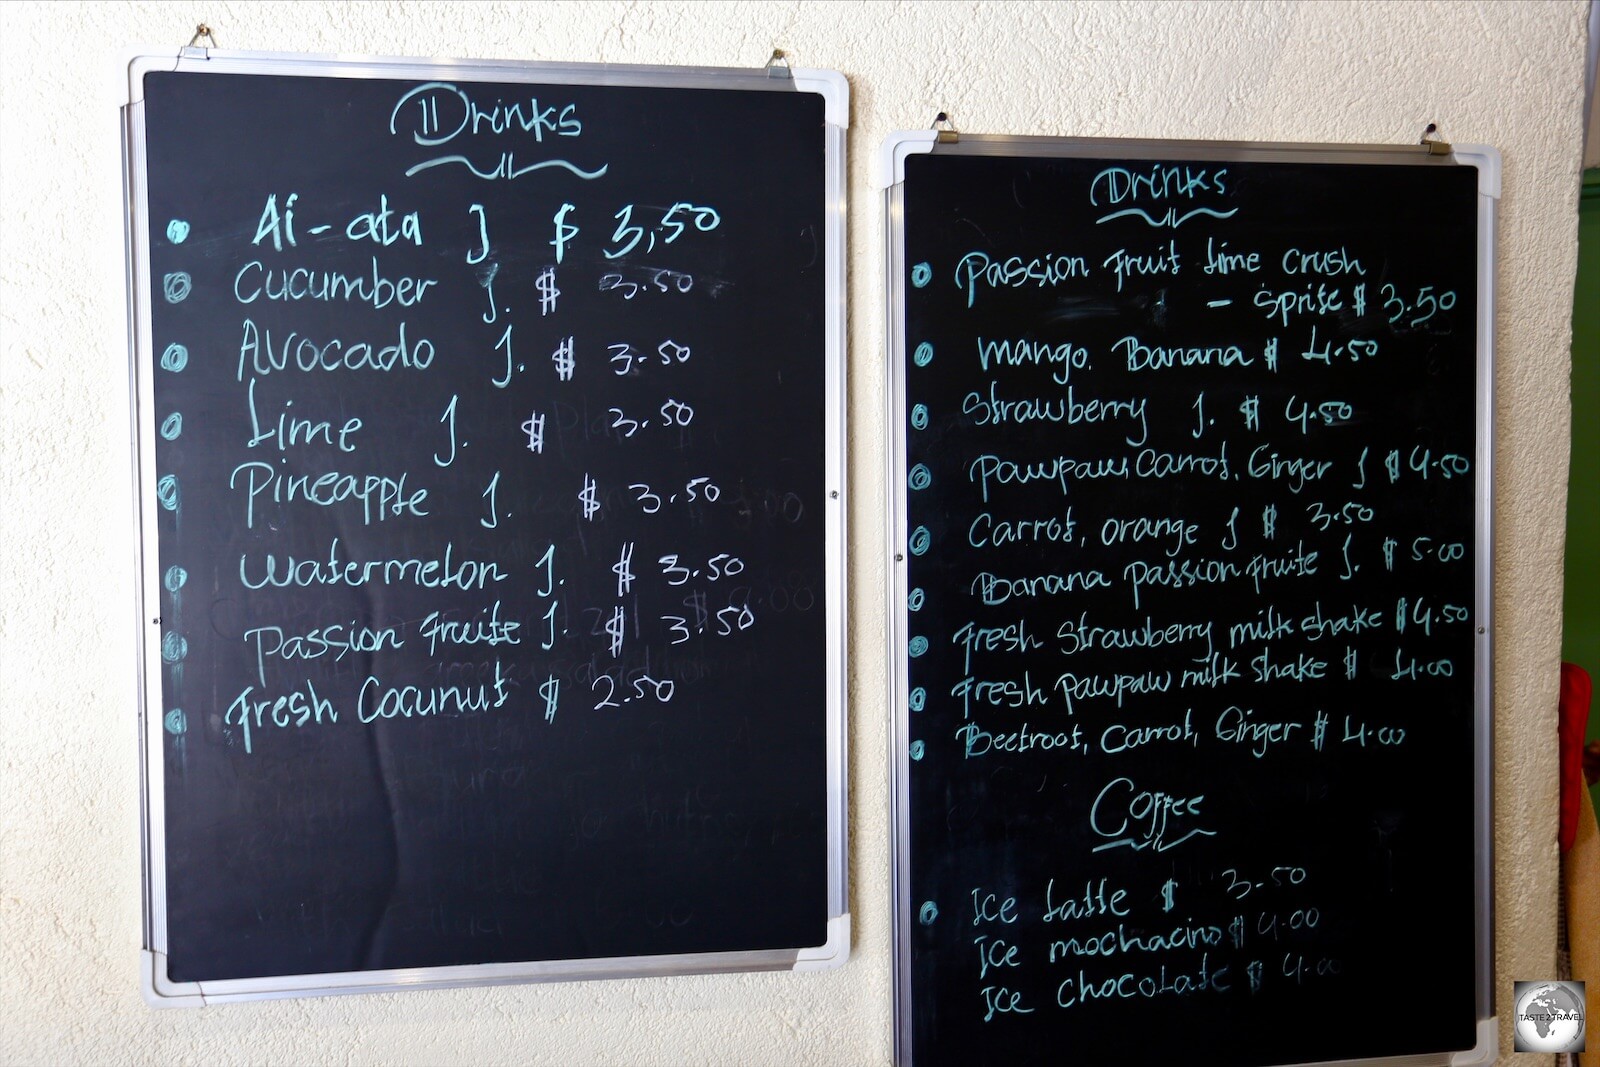 Drinks
Ai-ata J $ 3,50
Cucumber J. $ 3.50
Avocado J. $ 3.50
Lime J. $ 3.50
Pineapple J. $ 3.50
Watermelon J. $ 3.50
Passion Fruite J. $ 3.50
Fresh Cocunut $ 2.50
Drinks
Passion Fruit Lime crush
- Sprite $ 3.50
Mango. Banana $ 4.50
Strawberry J. $ 4.50
Pawpaw, Carrot, Ginger J $ 4.50
Carrot, orange J $ 3.50
Banana Passion Fruite J. $ 5.00
Fresh Strawberry milk shake $ 4.50
Fresh Pawpaw milk shake $ 4.00
Beetroot, Carrot, Ginger $ 4.00
Coffee
Ice Latte $ 3.50
Ice mochacino $ 4.00
Ice chocolate $ 4.00
TASTE2TRAVEL